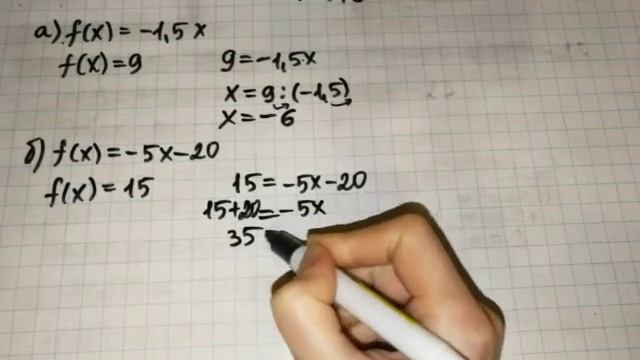 а) f(x) = -1,5x
f(x) = 9
9 = -1,5x
x = 9 : (-1,5)
x = -6
б) f(x) = -5x-20
f(x) = 15
15 = -5x-20
15+20 = -5x
35